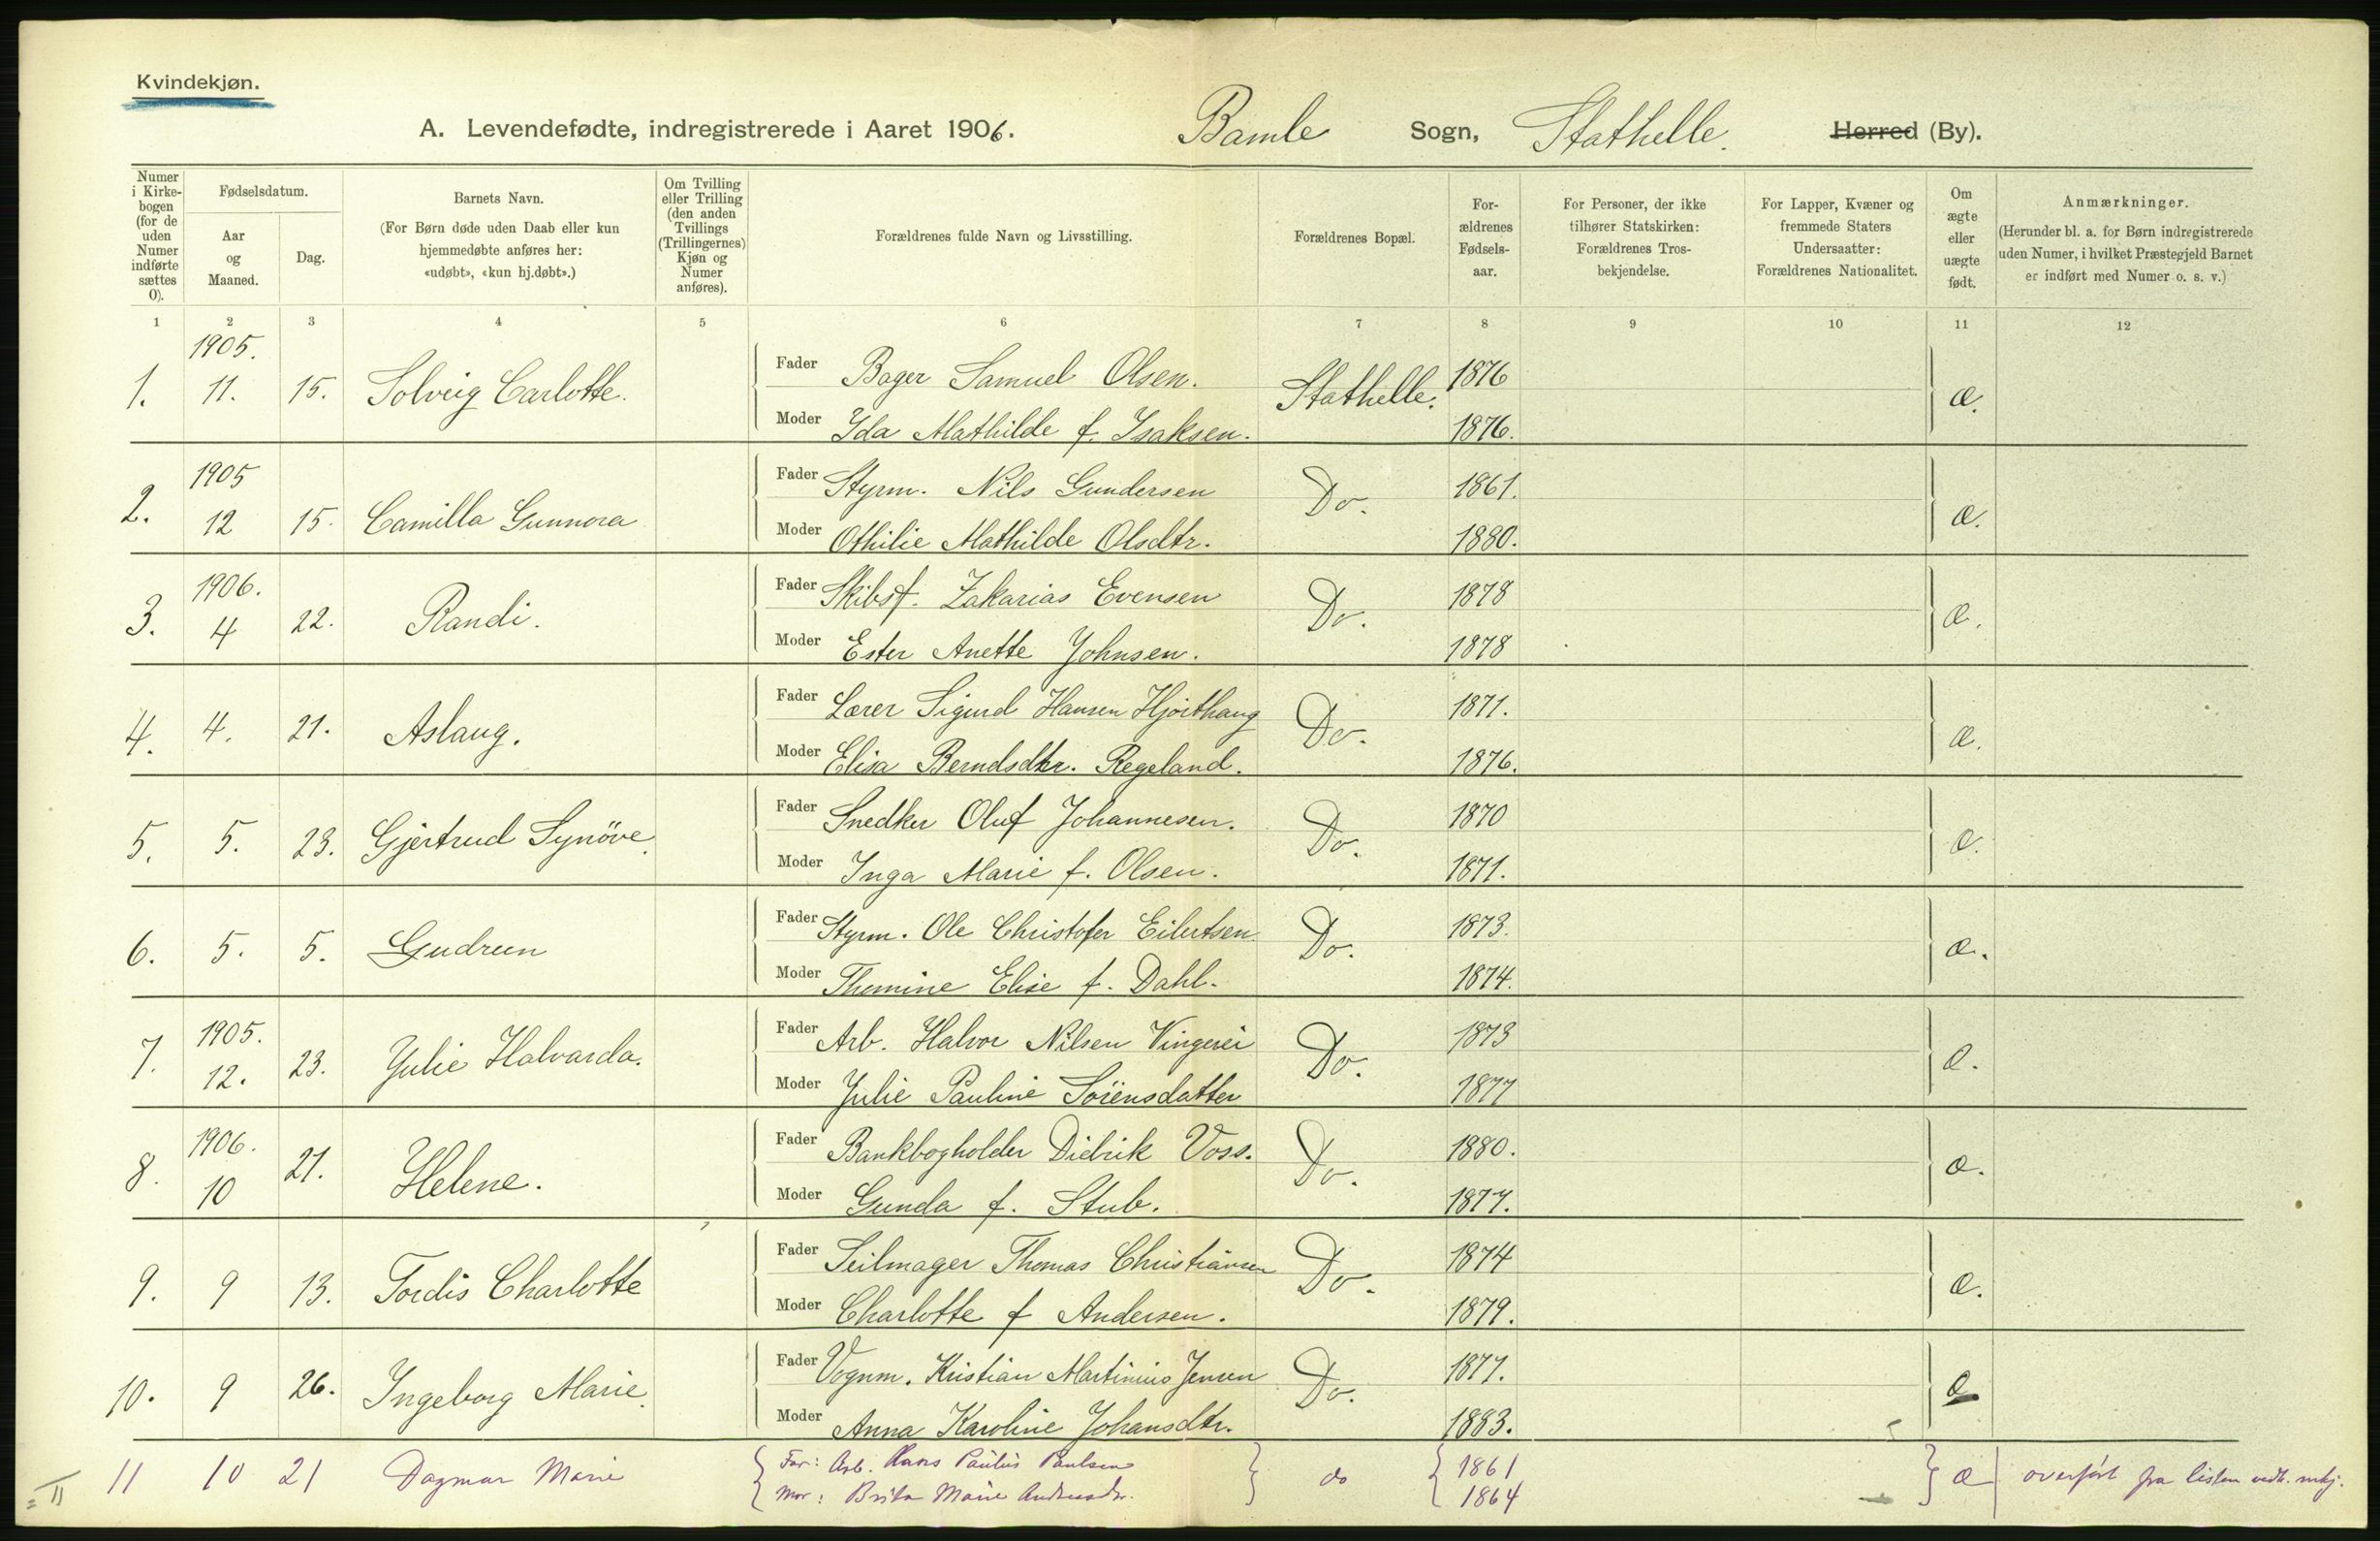 Kvindekjøn.
A. Levendefødte, indregistrerede i Aaret 1906. Bamle Sogn, Stathelle. Herred (By).
Numer i Kirke-bogen (for de uden Numer indførte sættes 0).
Fødselsdatum.
Aar og Maaned.
Dag.
Barnets Navn.
(For Børn døde uden Daab eller kun hjemmedøbte anføres her: «udøbt», «kun hj.døbt».)
Om Tvilling eller Trilling (den anden Tvillings (Trillingernes) Kjøn og Numer anføres).
Forældrenes fulde Navn og Livsstilling.
Forældrenes Bopæl.
For-ældrenes Fødsels-aar.
For Personer, der ikke tilhører Statskirken: Forældrenes Tros-bekjendelse.
For Lapper, Kvæner og fremmede Staters Undersaatter: Forældrenes Nationalitet.
Om ægte eller uægte født.
Anmærkninger.
(Herunder bl. a. for Børn indregistrerede uden Numer, i hvilket Præstegjeld Barnet er indført med Numer o. s. v.)
1 2 3 4 5 6 7 8 9 10 11 12
1. 1905. 11. 15. Solveig Carlotte. Fader Bager Samuel Olsen. Stathelle. 1876 æ.
Moder Ida Mathilde f. Isaksen. 1876.
2. 1905 12 15. Camilla Gunnora Fader Styrm. Nils Gundersen Do. 1861. æ.
Moder Othilie Mathilde Olsdtr. 1880.
3. 1906. 4 22. Randi. Fader Skibsf. Zakarias Evensen Do. 1878 æ.
Moder Ester Anette Johnsen. 1878
4. 4. 21. Aslaug. Fader Lærer Sigurd Hansen Hjorthaug Do. 1871. æ.
Moder Elisa Berndsdtr. Regeland. 1876.
5. 5. 23. Gjertrud Synöve. Fader Snedker Oluf Johannesen. Do. 1870 æ.
Moder Inga Marie f. Olsen. 1871.
6. 5. 5. Gudrun Fader Styrm. Ole Christofer Eilertsen. Do. 1873. æ.
Moder Thomine Elise f. Dahl. 1874.
7. 1905. 12. 23. Julie Halvarda. Fader Arb. Halvor Nilsen Vingerei Do. 1873 æ.
Moder Julie Pauline Sörensdatter 1877
8. 1906. 10 21. Helene. Fader Bankbogholder Didrik Voss. Do. 1880. æ.
Moder Gunda f. Stub. 1877.
9. 9 13. Tordis Charlotte Fader Seilmager Thomas Christiansen Do. 1874 æ.
Moder Charlotte f Andersen. 1879.
10. 9 26. Ingeborg Marie. Fader Vognm. Kristian Martinius Jensen Do. 1877. æ
Moder Anna Karoline Johansdtr. 1883.
= II 11 10 21 Dagmar Marie Far: Arb. Hans Paulus Paulsen do 1861 æ overført fra listen vedk. mkj.
Mor: Brita Marie 1864